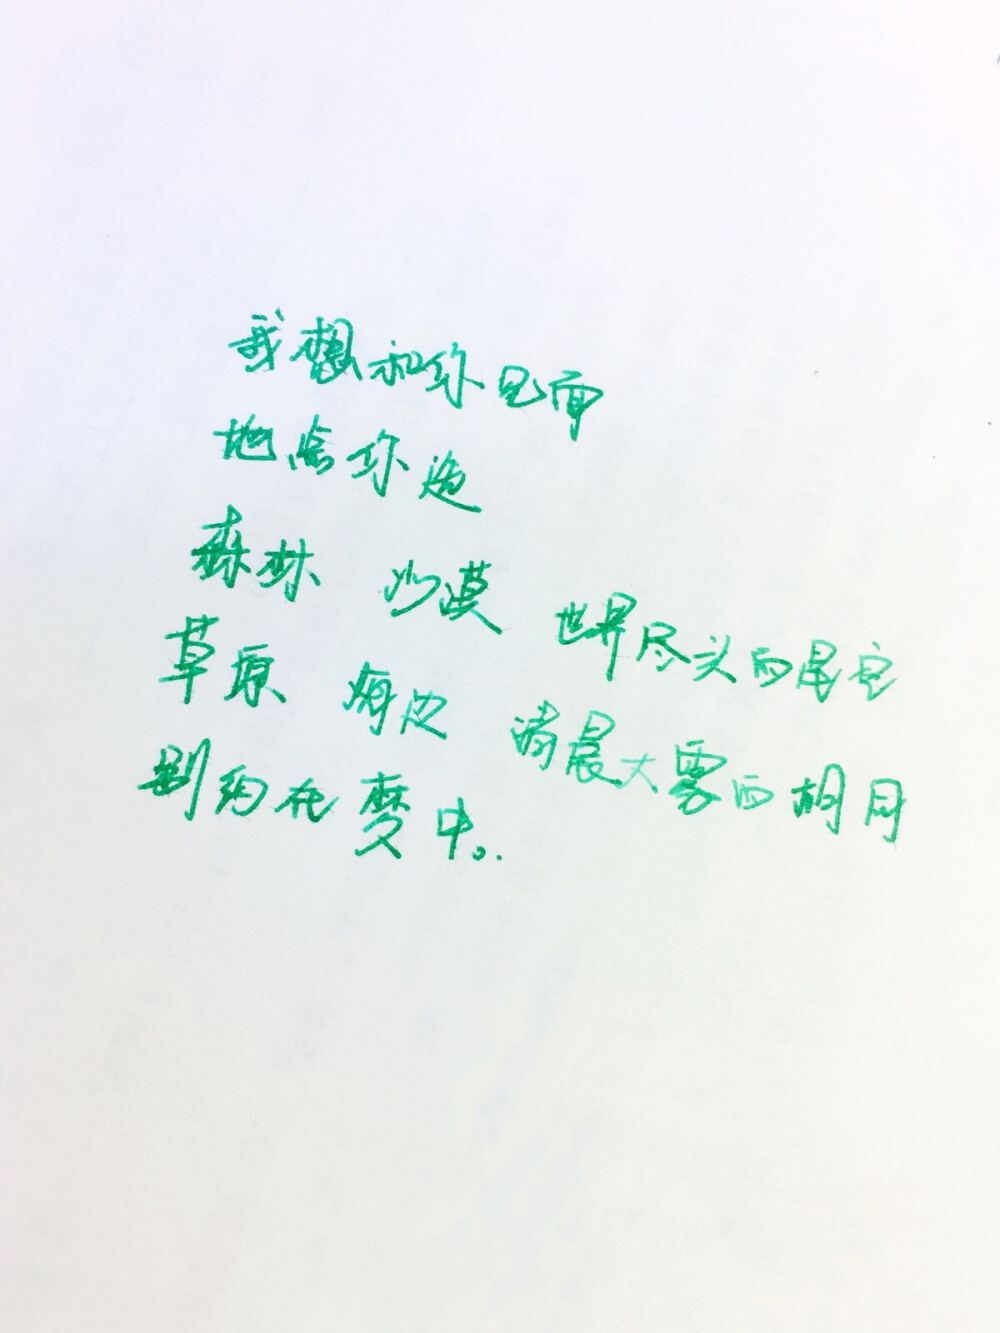 我想和你见面
地点你选
森林 沙漠 世界尽头的星空
草原 海边 清晨大雾的胡同
别约在梦中。.